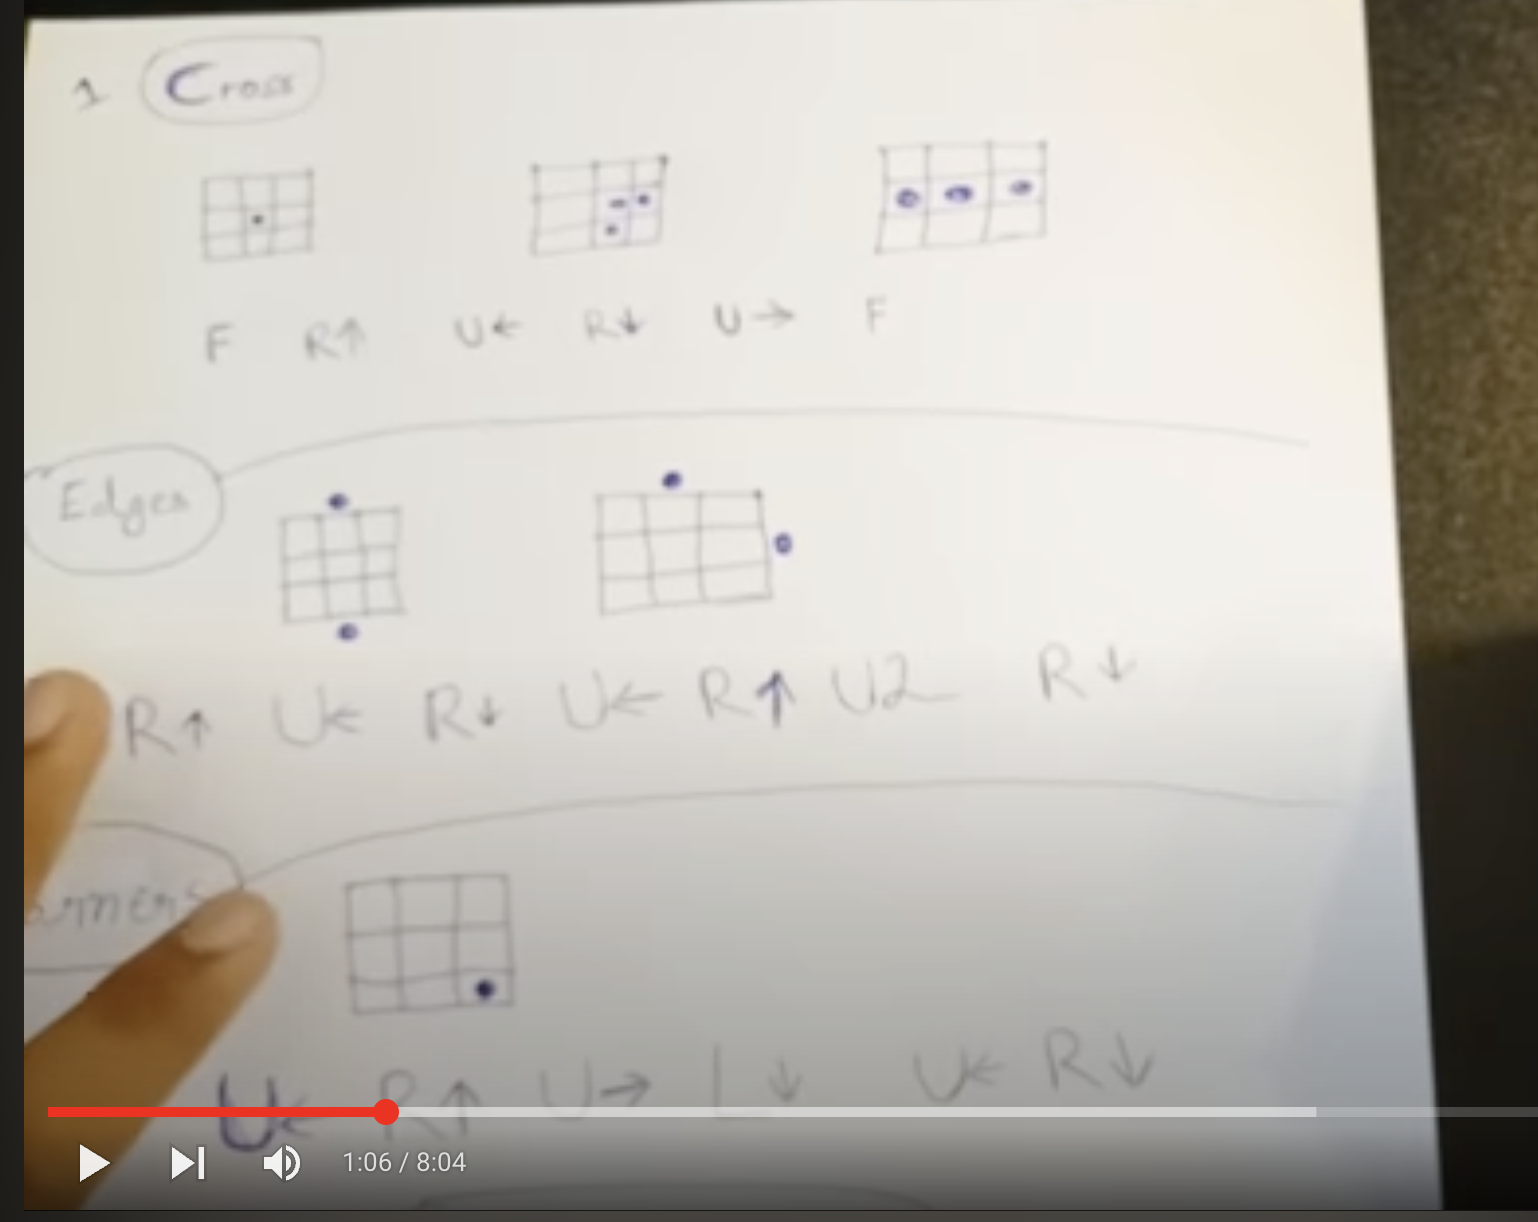 1 Cross
F R↑ U← R↓ U→ F
Edges
R↑ U← R↓ U← R↑ U2 R↓
U← R↑ U→ L↓ U← R↓
1:06 / 8:04